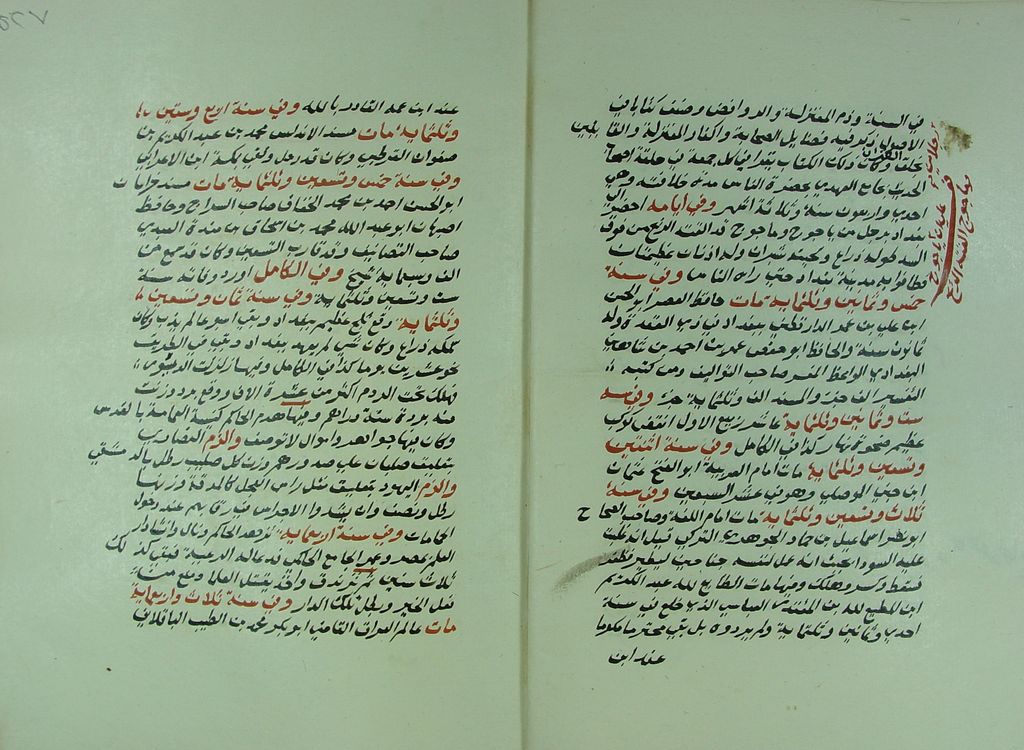 في السنة وذم المعتزلة والروافض وصنف كتابا في
الاصول ذكر فيه فضايل الصحابة واكفار المعتزلة والقايلين
بخلق القران وكان ذلك الكتاب يقرا في كل جمعة في حلقة اصحاب
الحديث بجامع المهدي بحضرة الناس مدة خلافته وهي
احدي واربعون سنة وثلاثة اشهر وفي ايامه احضر الي
بغداد برجل من ياجوج وماجوج قد القته الريح من فوق
السد طوله ذراع ولحيته شبران وله اذنان عظيمتان
فطافوا به مدينة بغداد حتي راه الناس وفي سنة
خمس وثمانين وثلثماية مات حافظ العصر ابو الحسن
ابن علي بن عمر الدارقطني ببغداد في ذي القعدة وله
ثمانون سنة والحافظ ابو حفص عمر بن احمد بن شاهين
البغدادي الواعظ المفسر صاحب التواليف ومن كتبه
التفسير الف جزء والمسند الف وثلثماية جزء وفي سنة
ست وثمانين وثلثماية عاشر ربيع الاول انقض كوكب
عظيم ضحوة نهار كذا في الكامل وفي سنة اثنتين
وتسعين وثلثماية مات امام العربية ابو الفتح عثمان
ابن جني الموصلي وهو في عشر السبعين وفي سنة
ثلاث وتسعين وثلثماية مات امام اللغة وصاحب الصحاح
ابو نصر اسماعيل بن حماد الجوهري التركي قيل انه غلبت
عليه السودا بحيث انه عمل لنفسه جناحين ليطير فطفر
فسقط وتكسر وهلك وفيها مات الطايع لله عبد الكريم
ابن المطيع لله بن المقتدر العباسي الذي خلع في سنة
احدي وثمانين وثلثماية ولم يردوه بل بقي محترما مكرما
عند ابن
ياجوج
وماجوج القته الريح
عند ابن عمه القادر بالله وفي سنة اربع وستين
وثلثماية مات مسند الاندلس محمد بن عبد الكريم بن
صفوان القرطبي وكان قد رحل ولقي بمكة ابن الاعرابي
وفي سنة خمس وتسعين وثلثماية مات مسند خراسان
ابو الحسين احمد بن محمد الخفاف صاحب السراج وحافظ
اصبهان ابو عبد الله محمد بن اسحاق بن مندة العبدي
صاحب التصانيف وقد قارب التسعين وكان قد سمع من
الف وسبعماية شيخ وفي الكامل اورد وفاته سنة
ست وتسعين وثلثماية وفي سنة ثمان وتسعين
وثلثماية وقع ثلج عظيم ببغداد وبقي اسبوعا لم يذب وكان
سمكه ذراع وكان شي لم يعهد ببغداد وبقي في الطريق
نحو عشرين يوما كذا في الكامل وفيها زلزلت الدينور
فهلك تحت الردم اكثر من عشرة الاف ووقع برد وزنت
منه بردة ستة دراهم وفيها هدم الحاكم كنيسة القمامة بالقدس
وكان فيها جواهر واموال لا توصف والزم النصاري
بتعليق صلبان علي صدورهم وزن كل صليب رطل بالدمشقي
والزم اليهود بتعليق مثل راس العجل كالمدقة وزنها
رطل ونصف وان يشدوا الاجراس في رقابهم عند دخول
الحمامات وفي سنة اربعماية تزهد الحاكم وانشا دار
العلم بمصر وعمر الجامع الحاكمي فدعا له الرعية فبقي كذلك
ثلاث سنين ثم تزندق واخذ يقتل العلما ومنع من
فعل الخير وبطل تلك الدار وفي سنة ثلاث واربعماية
مات عالم العراق القاضي ابو بكر محمد بن الطيب الباقلاني